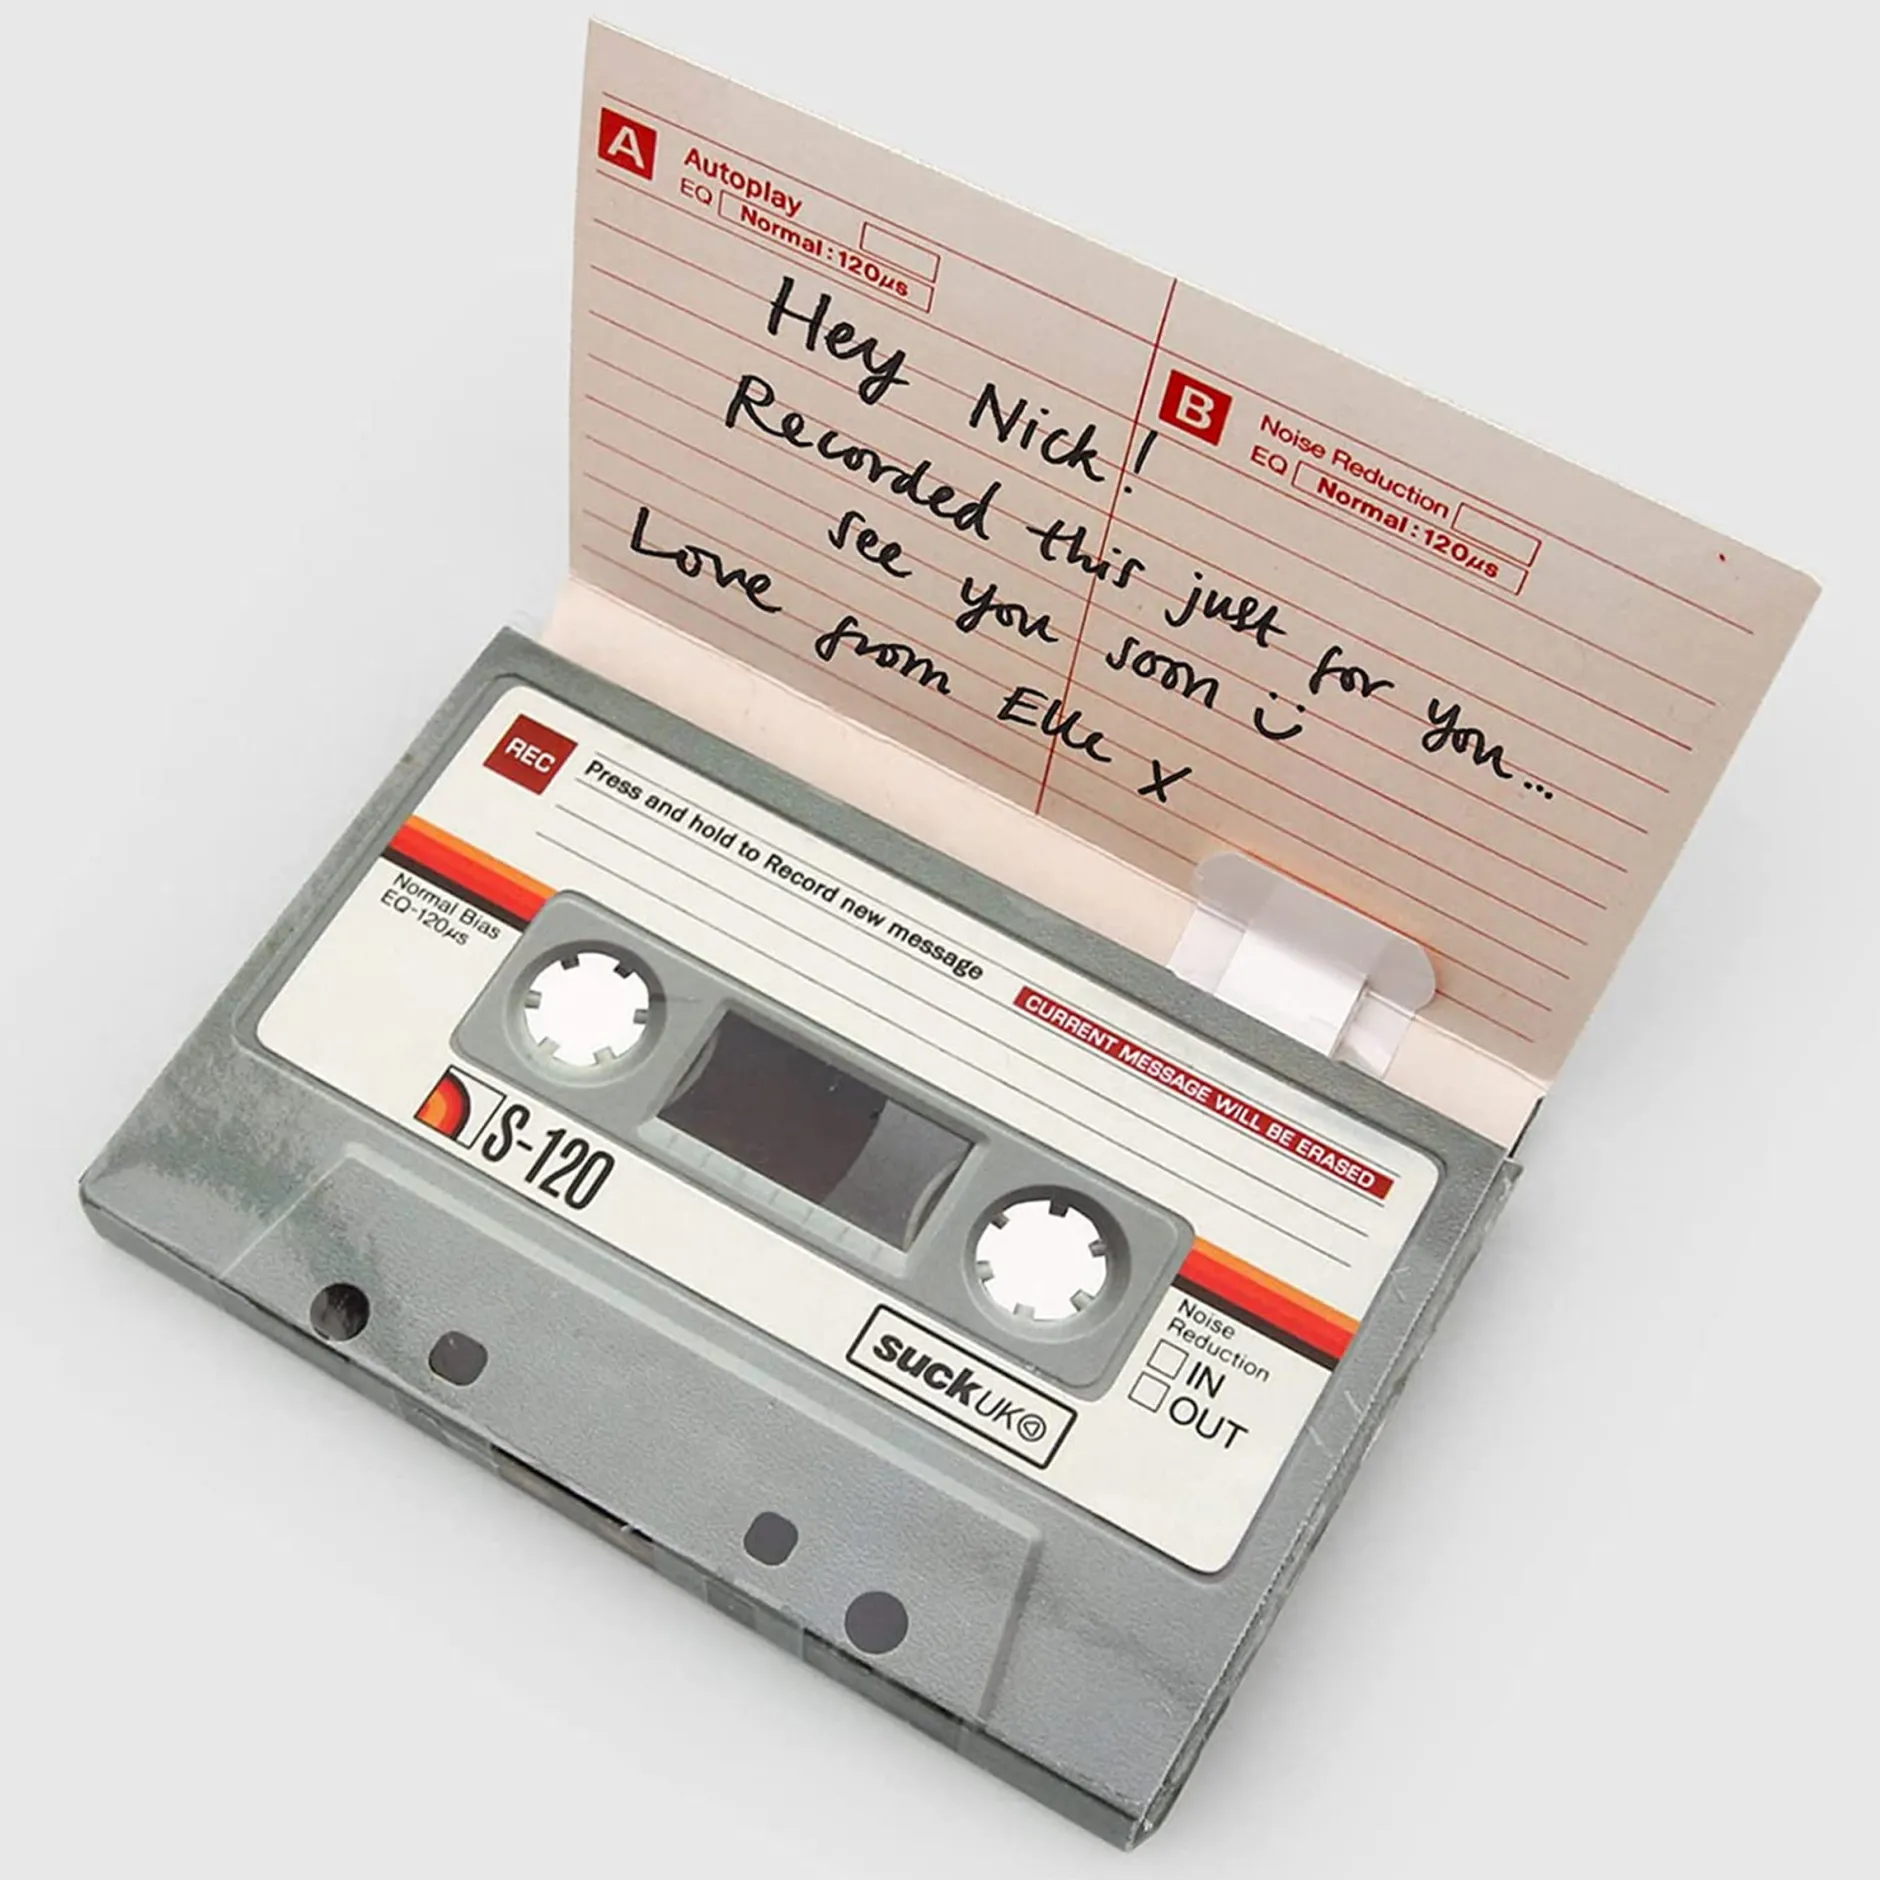 A
Autoplay
EQ Normal : 120µs
B
Noise Reduction
EQ Normal : 120µs
Hey Nick!
Recorded this just for you...
see you soon
Love from Elle X
REC
Press and hold to Record new message
CURRENT MESSAGE WILL BE ERASED
Normal Bias
EQ-120µs
S-120
suck UK
Noise
Reduction
IN
OUT